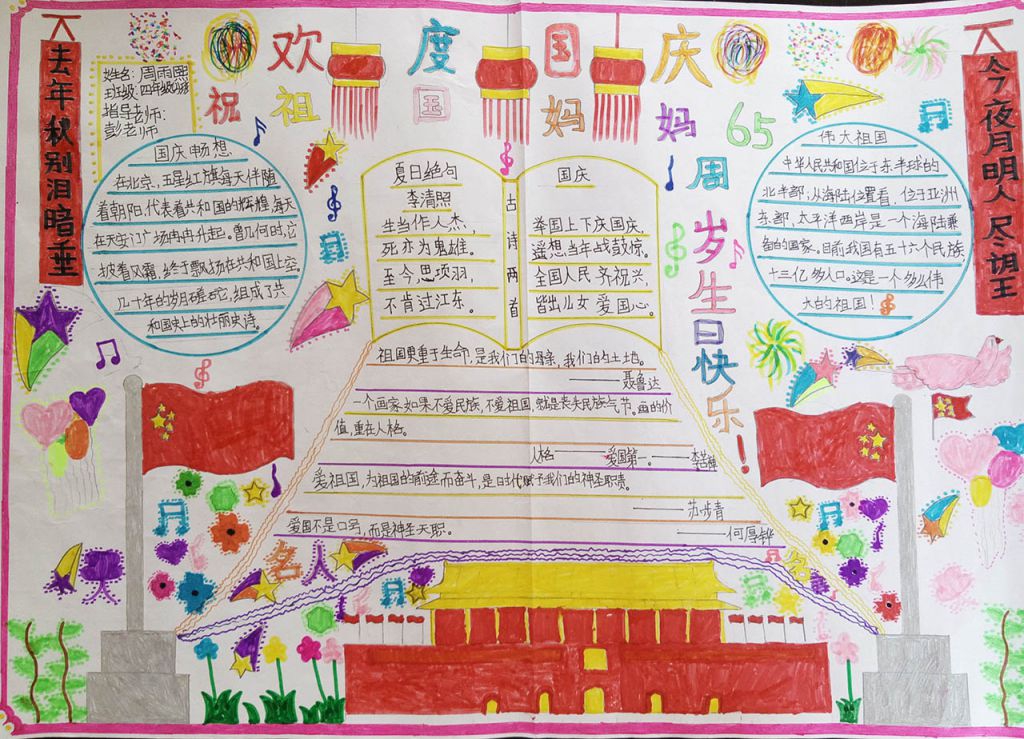 欢度国庆
祝祖国妈妈65周岁生日快乐！
去年秋别泪暗垂
今夜月明人尽望
姓名：周雨熙
指导老师：
彭老师
国庆畅想
在北京，五星红旗每天伴随
着朝阳，代表着共和国的辉煌，每天
在天安门广场冉冉升起。曾几何时，它
披着风霜，终于飘扬在共和国上空。
几十年的岁月磋砣，组成了共
和国史上的壮丽史诗。
夏日绝句
李清照
生当作人杰，
死亦为鬼雄。
至今思项羽，
不肯过江东。
古诗两首
国庆
举国上下庆国庆，
遥想当年战鼓惊。
全国人民齐祝兴，
皆出儿女爱国心。
伟大祖国
中华人民共和国位于东半球的
北半部，从海陆位置看，位于亚洲
东部，太平洋西岸是一个海陆兼
备的国家。目前我国有五十六个民族
十三亿多人口。这是一个多么伟
大的祖国！
祖国更重于生命，是我们的母亲，我们的土地。
——聂鲁达
一个画家如果不爱民族，不爱祖国，就是丧失民族气节。画的价
值，重在人格。
人格——爱国第一。——李苦禅
爱祖国，为祖国的前途而奋斗，是时代赋予我们的神圣职责。
——苏步青
爱国不是口号，而是神圣天职。
——何厚铧
名人名